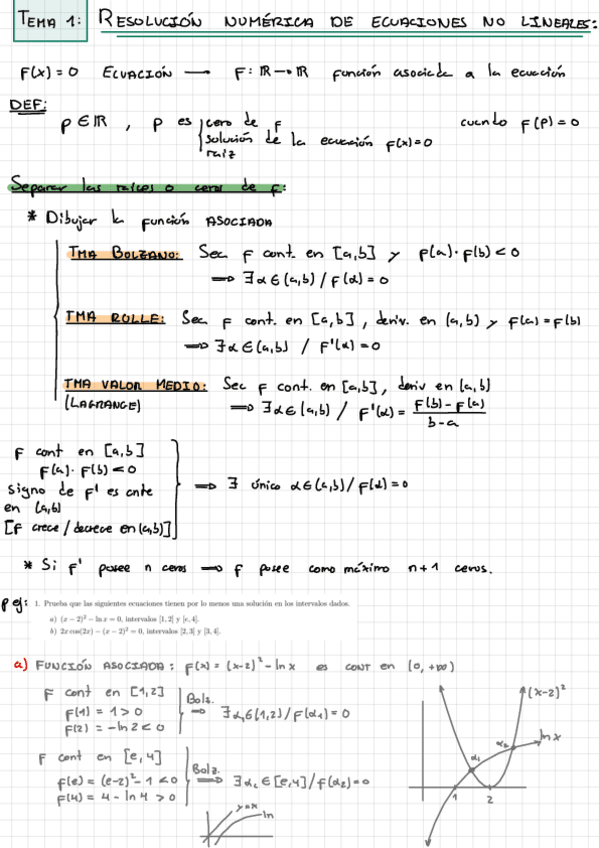 TEMA 1: RESOLUCIÓN NUMÉRICA DE ECUACIONES NO LINEALES:
F(x)=0 ECUACIÓN → F: ℝ→ℝ función asociada a la ecuación
DEF:
p∈ℝ, p es cero de f cuando F(p)=0
solución de la ecuación F(x)=0
raiz
Separar las raíces o ceros de f:
* Dibujar la función ASOCIADA
TMA BOLZANO: Sea f cont. en [a,b] y f(a)·f(b)<0
⟹ ∃α∈(a,b)/f(α)=0
TMA ROLLE: Sea f cont. en [a,b], deriv. en (a,b) y f(a)=f(b)
⟹ ∃α∈(a,b) / F'(α)=0
TMA VALOR MEDIO: Sea f cont. en [a,b], deriv en (a,b)
(LAGRANGE) ⟹ ∃α∈(a,b) / F'(α) = (F(b)-F(a))/(b-a)
F cont en [a,b]
F(a)·F(b)<0
signo de F' es cnte ⟹ ∃ único α∈(a,b)/F(α)=0
en (a,b)
[F crece/decrece en (a,b)]
* Si f' posee n ceros ⟹ f posee como máximo n+1 ceros.
p ej: 1. Prueba que las siguientes ecuaciones tienen por lo menos una solución en los intervalos dados.
a) (x − 2)² − ln x = 0, intervalos [1, 2] y [e, 4].
b) 2x cos(2x) − (x − 2)² = 0, intervalos [2, 3] y [3, 4].
a) FUNCIÓN ASOCIADA: F(x)=(x-2)²-ln x es CONT EN (0,+∞)
F cont en [1,2]
F(1) = 1>0 Bolz. ⟹ ∃α₁∈(1,2)/F(α₁)=0
F(2) = -ln 2<0
F cont en [e,4]
F(e) = (e-2)²-1<0 Bolz. ⟹ ∃α₂∈[e,4]/f(α₂)=0
F(4) = 4-ln 4>0
y=x
ln
(x-2)²
ln x
α₁
α₂
1 2